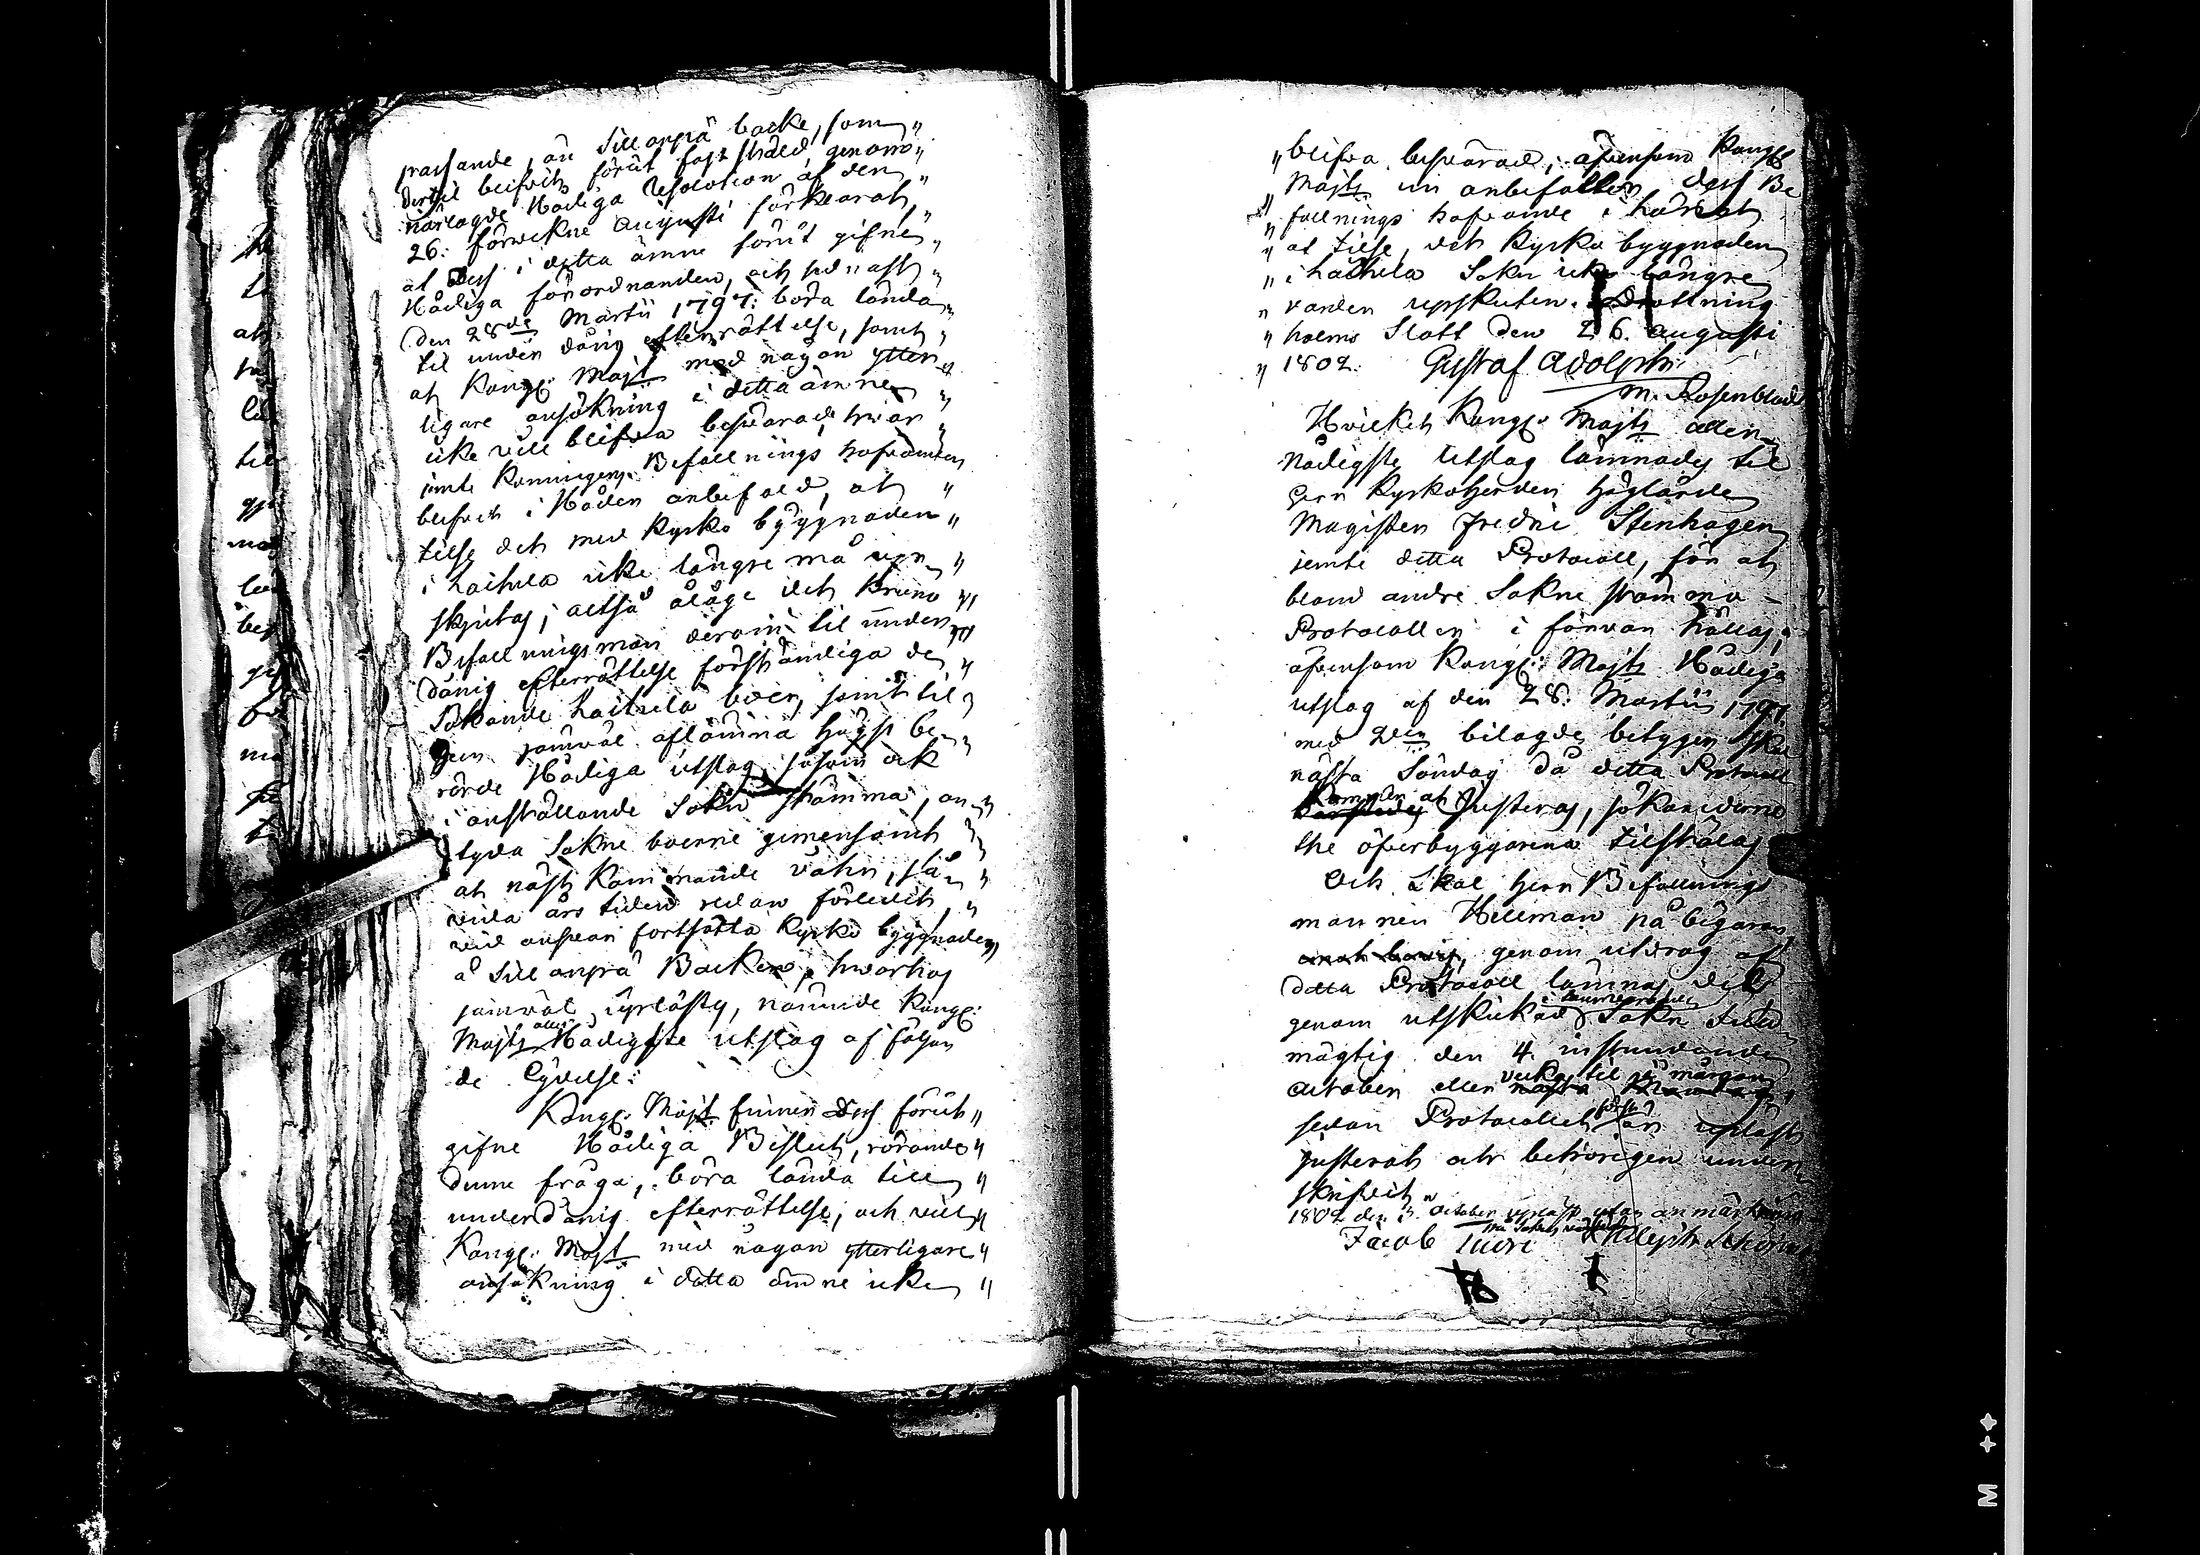 passande, än Sillanpä backe, som "
dertil blifvit förut fastställd genom "
närlagde Nådiga Resolution af den "
26. förwekne Augusti förklarat, "
at Dess i detta ämne förut gifne "
Nådiga förordnanden, och sednast "
den 28de Martii 1797. böra lända "
til underdånig efterrättelse, samt "
at Kongl. Majt med någon ytter- "
ligare ansökning i detta ämne "
icke vill blifwa beswärad, hwar "
jemte Konungens Befallnings hafwanden
blifvit i Nåden anbefald, at "
tilse det med Kyrko byggnaden "
i Laihela icke längre må upp- "
skjutas; altså ålåge det Krono "
Befallningsman derom til under- "
dånig efterrättelse förständiga de "
Sökande Laihela boer, samt til "
gen jämwäl aflämna högst be- "
rörde Nådiga utslag, såsom ock "
i anställande Sokne stämma, an- "
tyda Sokne boerne gemensamt "
at näst Kommande våhr, så- "
vida års tiden redan förledit, "
vid answar fortsätta Kyrko byggnaden "
å Sillanpä Backen, hwarhos
jämwäl uplästes, nämnde Kongl.
Majts allernådigste utslag af följan
de Lydelse:
Kongl. Majt finner Dess förut "
gifne Nådiga Beslut, rörande "
denne fråga, böra lända till "
underdånig efterrättelse, och vill "
Kongl. Majt med någon ytterligare "
ansökning i detta ämne icke "
" blifva besvärad; äfvensom Kongl.
" Majts un anbefallen dess Be
" fallnings hafvande i
" at tilse, det Kyrko byggnaden
" i Laihela Sokn icke längre
" varder upskuten. Drottning
" holms Slott den 26. Augusti
" 1802. Gustaf Adolph.
M. Rosenblad
Hvilket Kongl. Majts allen-
nådigste Utslag lämnades til
Herr Kyrkoherden Höglärde
Magisten Fredric Stenhagen
jemte detta Protocoll, för at
bland andre Sokne stämmo-
Protocoller i förvar hållas,
äfvensom Kongl. Majts Nådiga
utslag af den 28. Martii 1797
med dess bilagde betygen, skal
nästa Söndag då detta Protocoll
kommer at Justeras, sökanderne
the öfverbyggarena tilställas
Och skal Herr Befallnings
mannen Hellman på begäran,
genom utdrag af
detta Protocoll lämnas det
genom utskickad Sokn
mägtig den 4. instundande
October eller vecka til i mårgon
sedan Protocollet först är upläst
justerat och behörigen under
skrifvit "
1802 den 3. October upläst utan anmärkning
Jacob